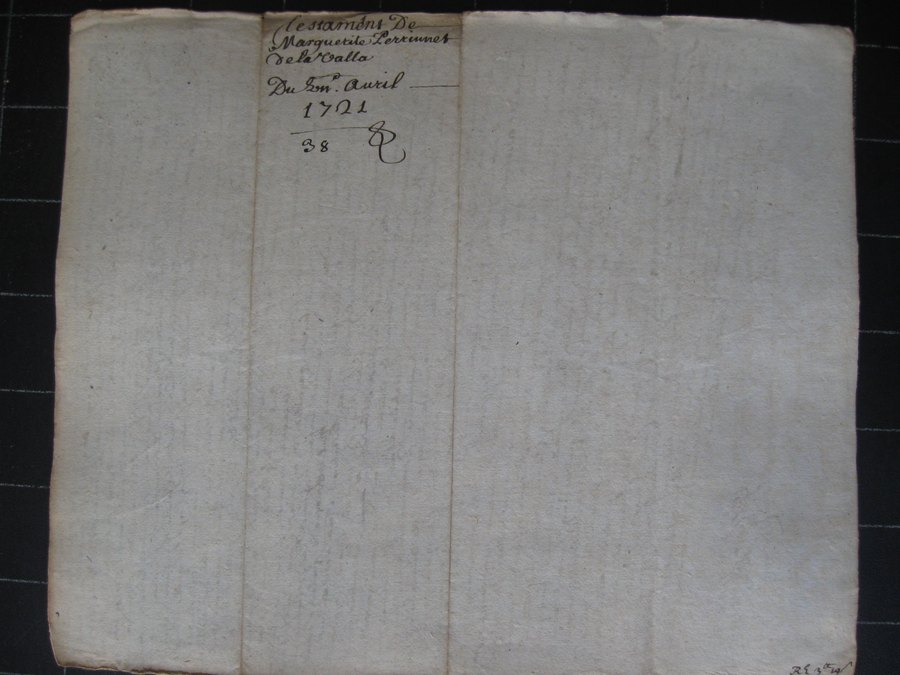 Testament De
Marguerite Perrinnet
De la Valla
Du Avril
1721
38